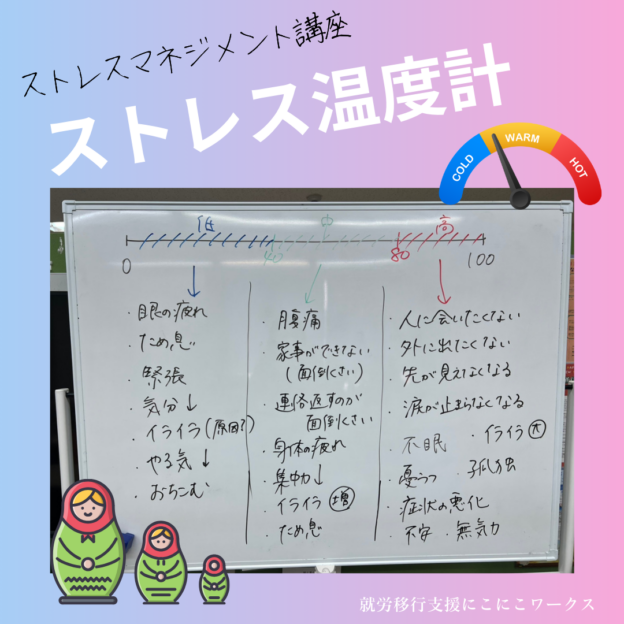 ストレスマネジメント講座
ストレス温度計
COLD
WARM
HOT
低
中
高
0
40
80
100
・眼の疲れ
・ため息
・緊張
・気分↓
・イライラ(原因?)
・やる気↓
・おちこむ
・腹痛
・家事ができない
(面倒くさい)
・連絡返すのが
面倒くさい
・身体の疲れ
・集中力↓
・イライラ 増
・ため息
・人に会いたくない
・外に出たくない
・先が見えなくなる
・涙が止まらなくなる
・不眠 ・イライラ 大
・憂うつ ・孤独
・症状の悪化
・不安 ・無気力
就労移行支援にこにこワークス